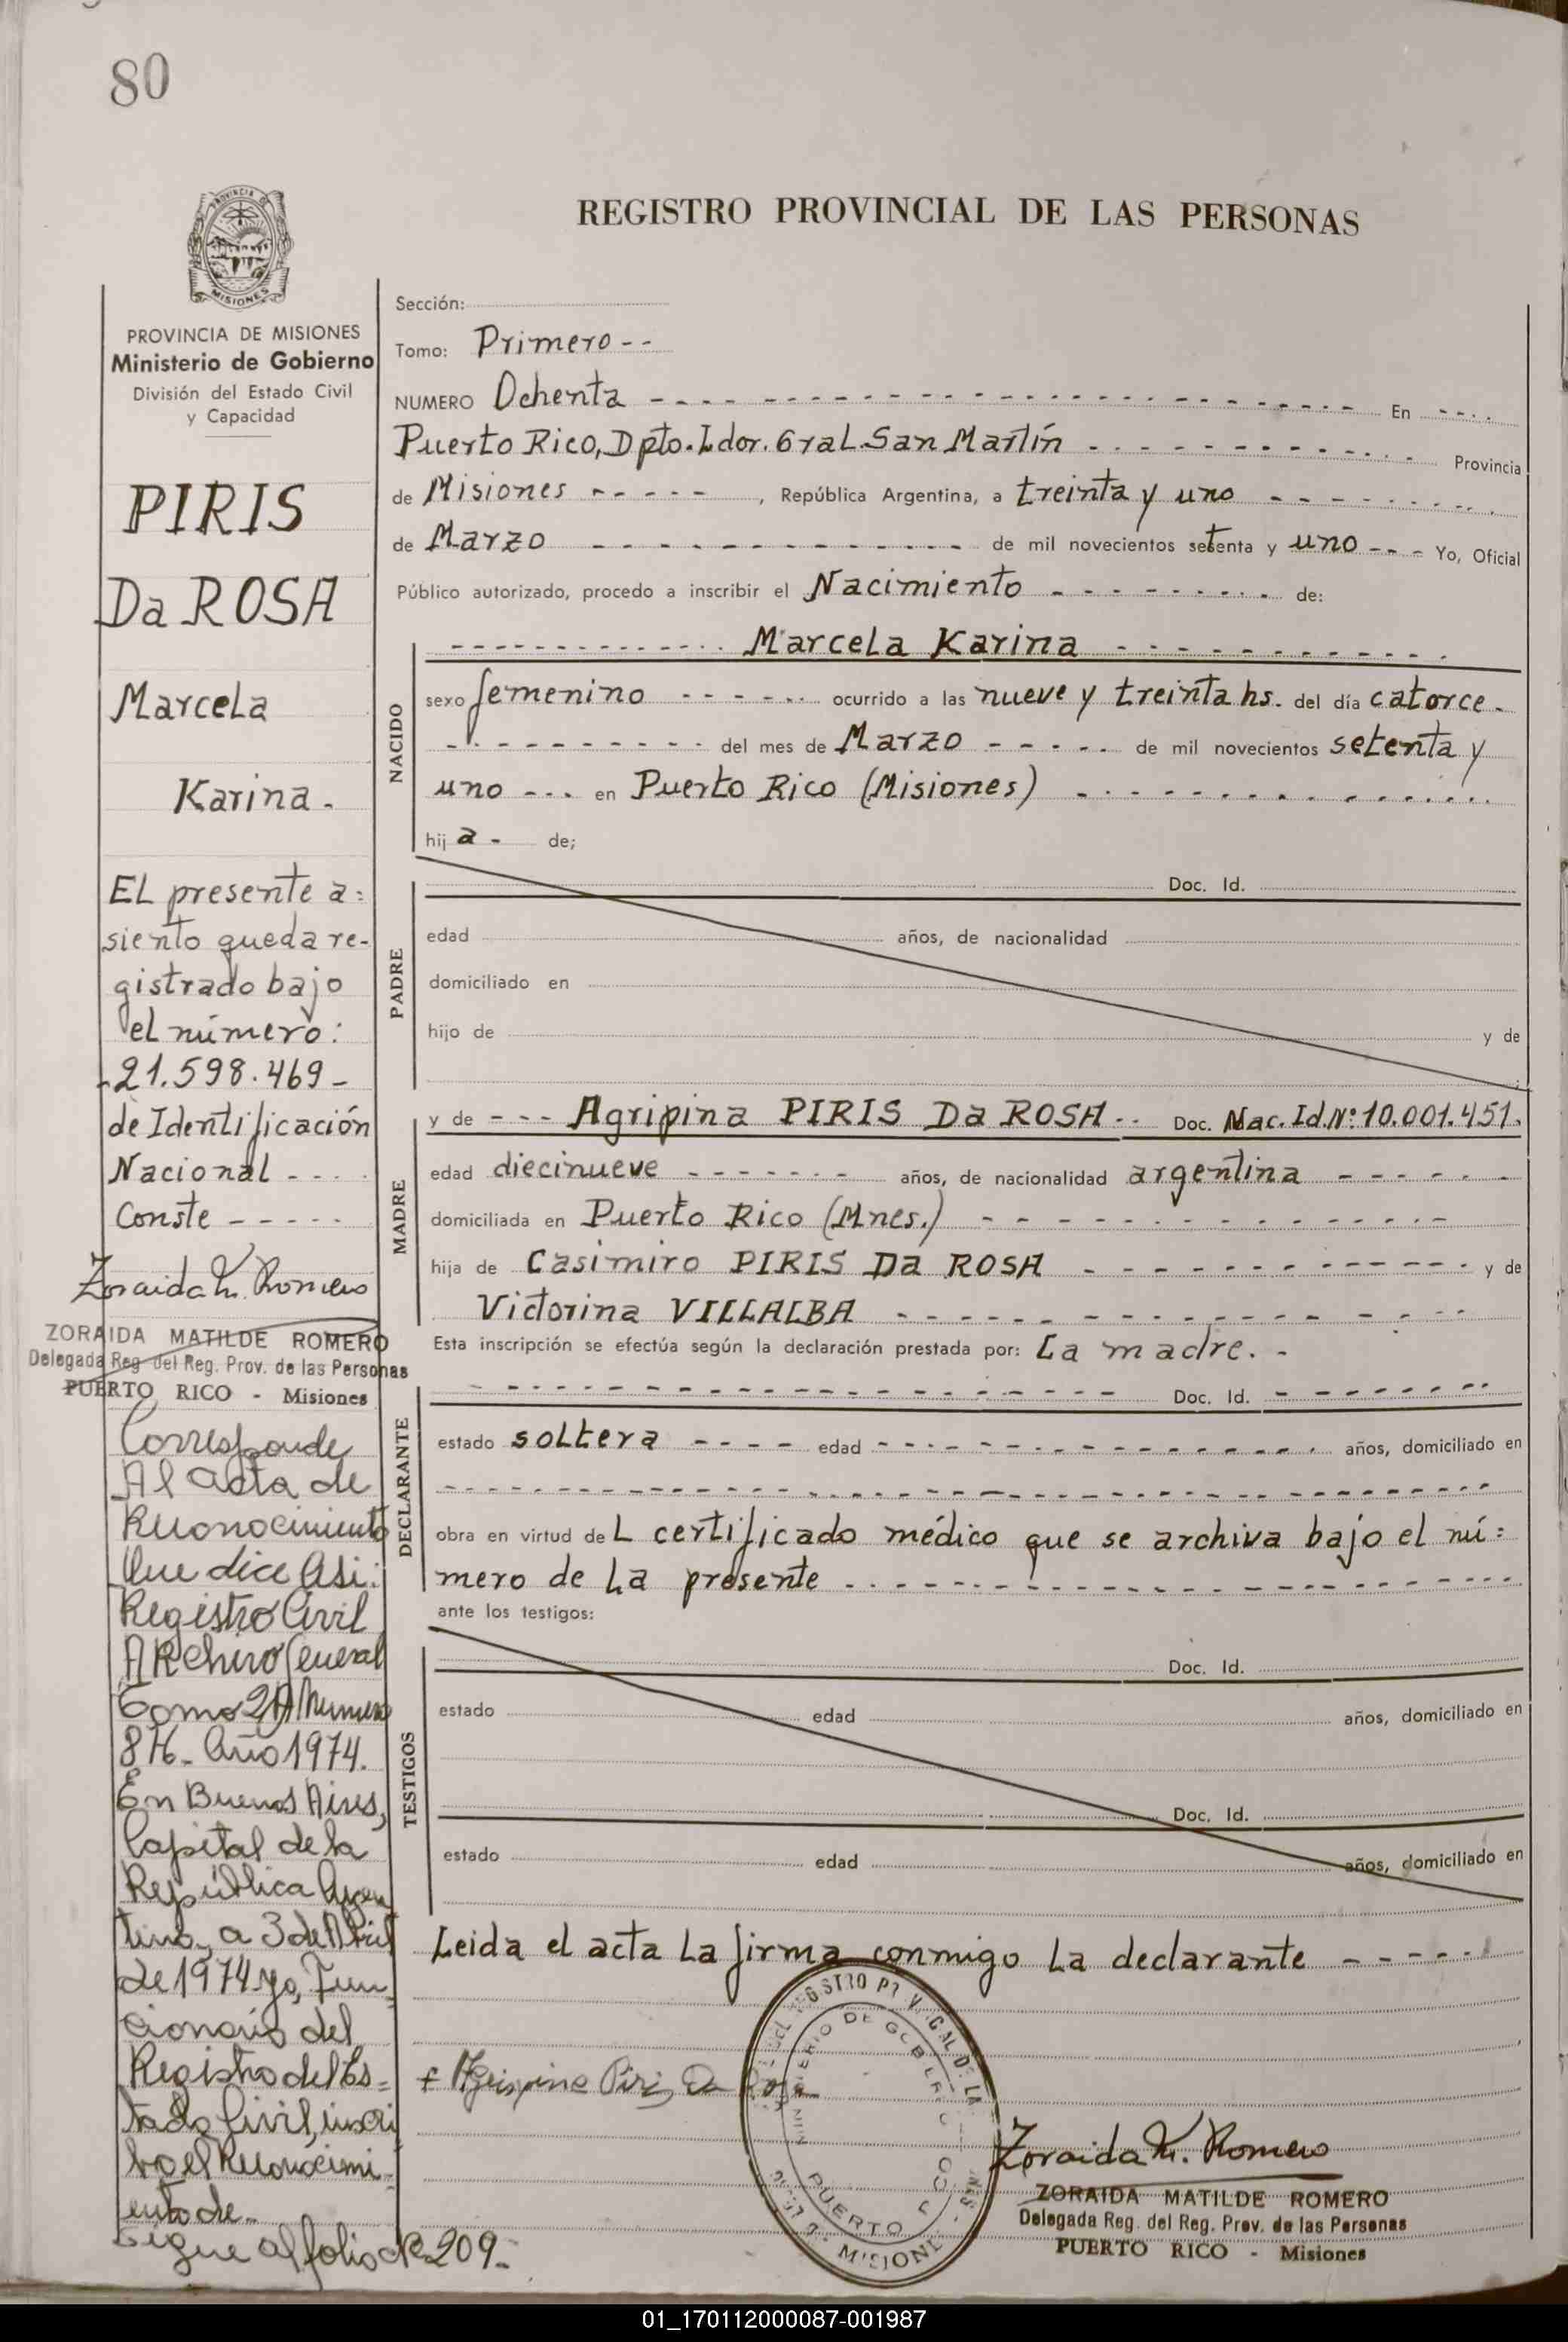 80
REGISTRO PROVINCIAL DE LAS PERSONAS
PROVINCIA DE MISIONES
Ministerio de Gobierno
División del Estado Civil
y Capacidad
PIRIS
Da ROSA
Marcela
Karina.
EL presente a=
siento queda re-
gistrado bajo
el número:
-21.598.469-
de Identificación
Nacional - - -
Conste - - - - -
Zoraida M. Romero
ZORAIDA MATILDE ROMERO
Delegada Reg. del Reg. Prov. de las Personas
PUERTO RICO - Misiones
Corresponde
Al acta de
Reconocimiento
Que dice Asi:
Registro Civil
ARchivo General
Tomo 2A Numero
876. Año 1974.
En Buenos Aires,
Capital de la
República Argen
tina, a 3 de Abril
de 1974 yo, Fun
cionario del
Registro del Es=
tado Civil, inscri
bo el Reconocimi-
ento de..
Sigue al folio de 209.-
Sección:
Tomo: Primero - -
NUMERO Ochenta - - - - En - - - -
Puerto Rico, Dpto. Ldor. Gral. San Martín - - - - Provincia
de Misiones - - - - - , República Argentina, a treinta y uno - - - -
de Marzo - - - - de mil novecientos setenta y uno - - - Yo, Oficial
Público autorizado, procedo a inscribir el Nacimiento - - - - de:
NACIDO
- - - - Marcela Karina - - - -
sexo femenino - - - - ocurrido a las nueve y treinta hs. del día catorce -
- - - - del mes de Marzo - - - - de mil novecientos setenta y
uno - - - en Puerto Rico (Misiones) - - - -
hij a - de;
PADRE
Doc. Id.
edad años, de nacionalidad
domiciliado en
hijo de y de
MADRE
y de - - - Agripina PIRIS Da ROSA - - Doc. Nac. Id. Nº: 10.001.451.
edad diecinueve - - - - años, de nacionalidad argentina - - - -
domiciliada en Puerto Rico (Mnes.) - - - -
hija de Casimiro PIRIS Da ROSA - - - - y de
Victorina VILLALBA - - - -
Esta inscripción se efectúa según la declaración prestada por: La madre. -
DECLARANTE
- - - - Doc. Id. - - - -
estado soltera - - - - edad - - - - años, domiciliado en
- - - -
obra en virtud de L certificado médico que se archiva bajo el nú=
mero de La presente - - - -
ante los testigos:
TESTIGOS
Doc. Id.
estado edad años, domiciliado en
Doc. Id.
estado edad años, domiciliado en
Leida el acta La firma conmigo La declarante - - - -
Agripina Piris Da Rosa
PUERTO RICO
MISIONES
Zoraida M. Romero
ZORAIDA MATILDE ROMERO
Delegada Reg. del Reg. Prov. de las Personas
PUERTO RICO - Misiones
01_170112000087-001987